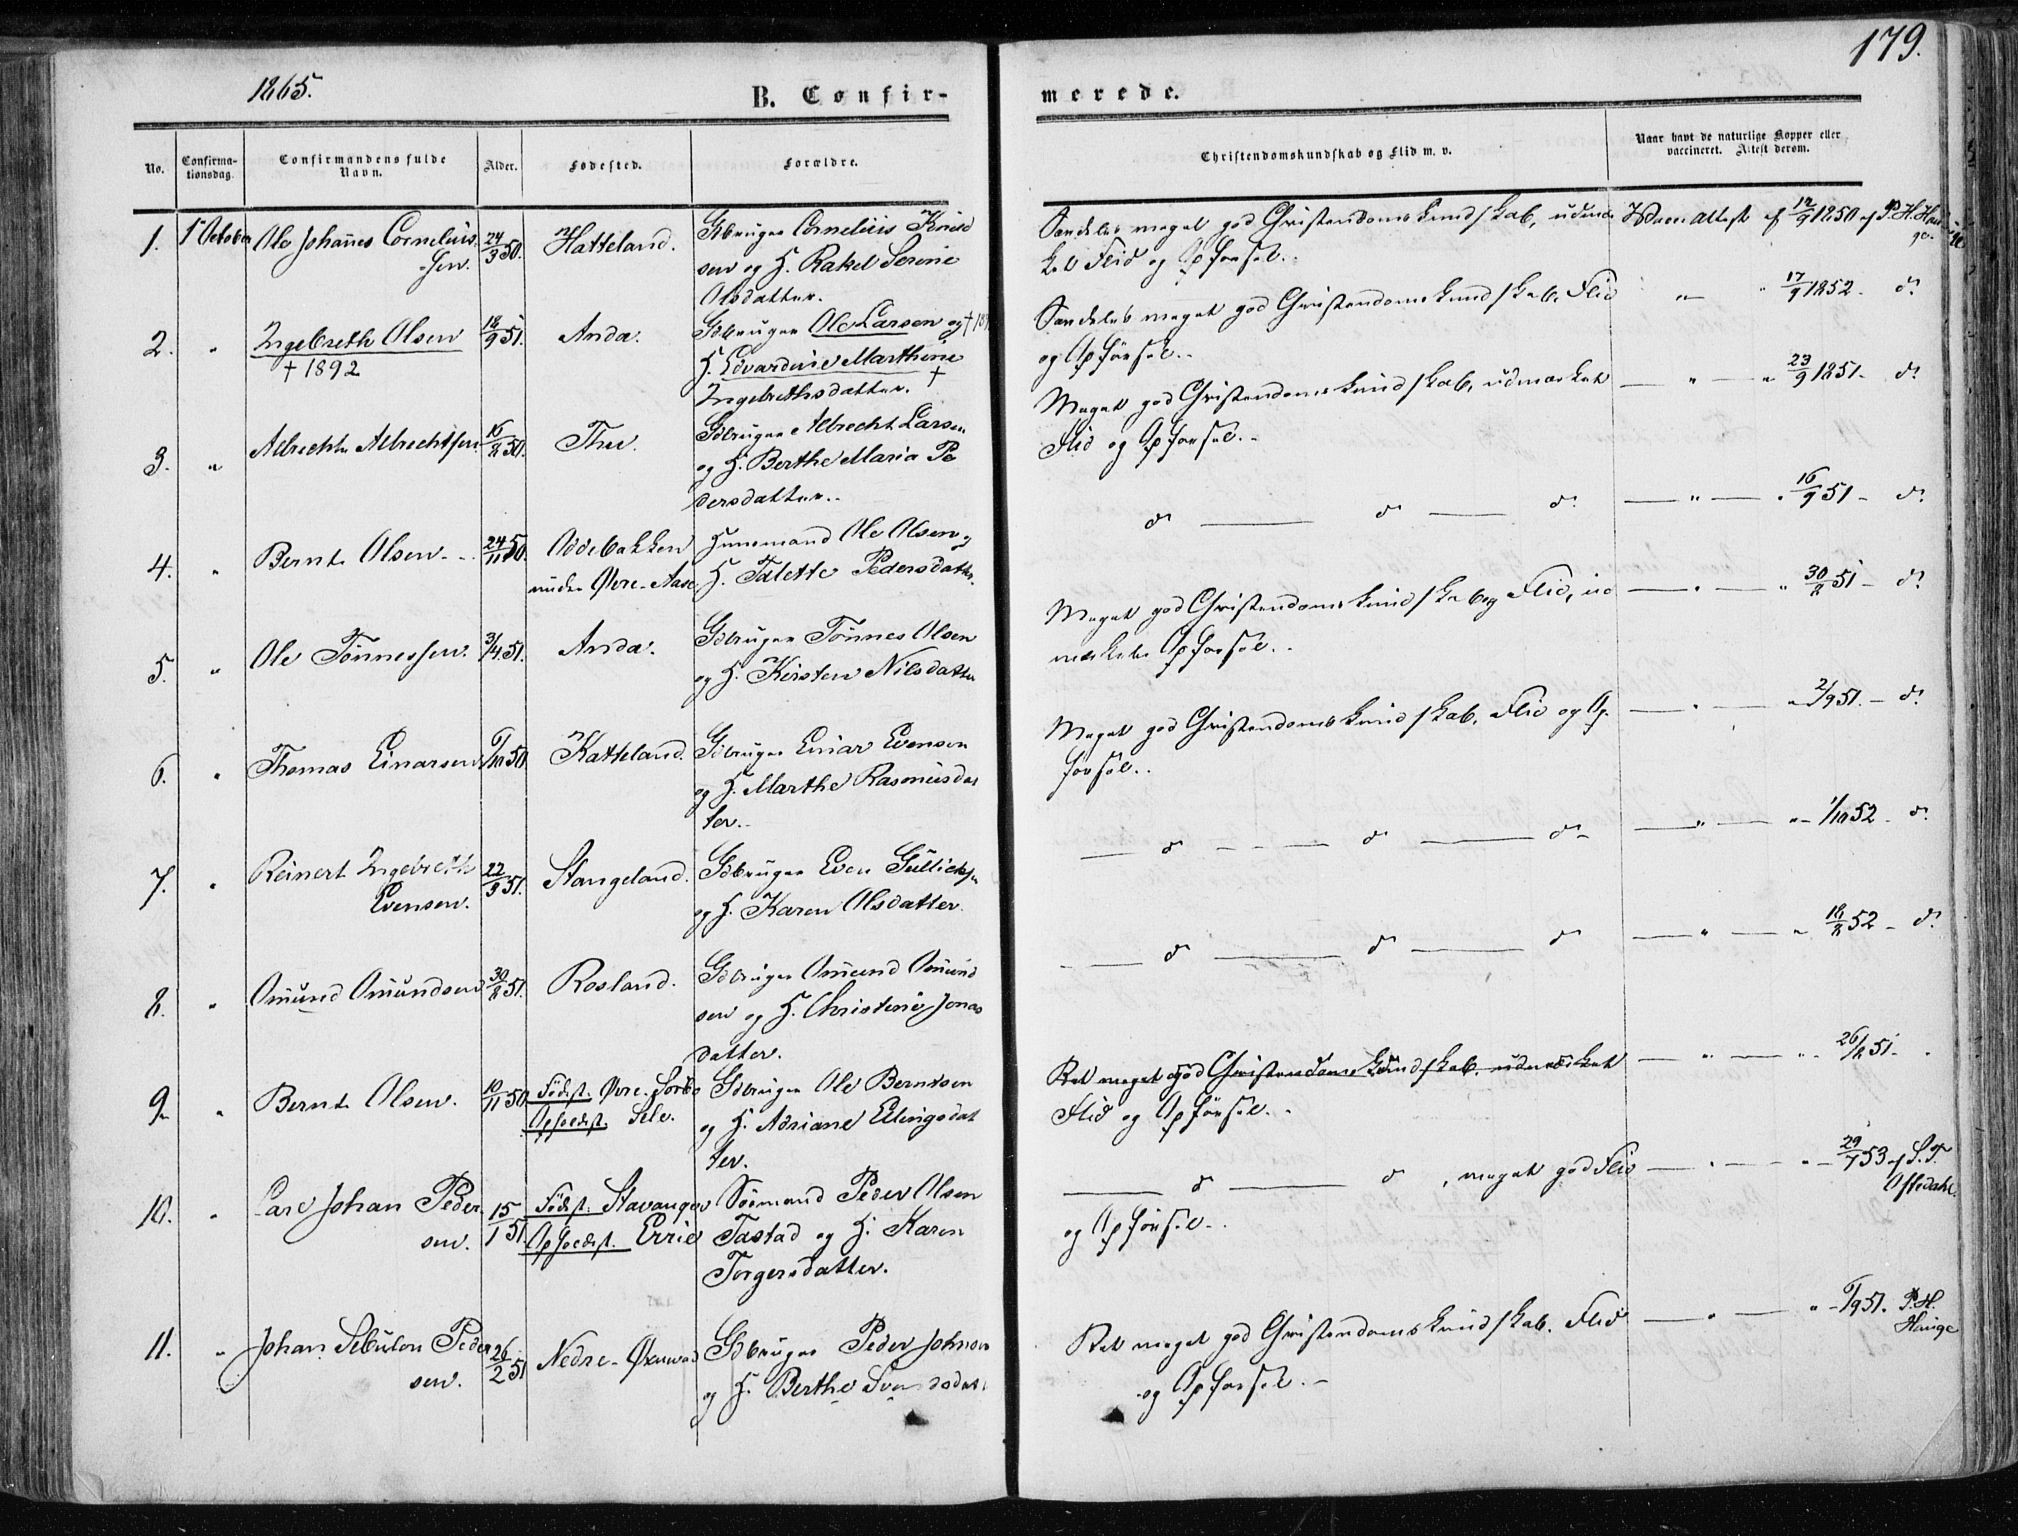 1865.
179.
B. Confir-
merede.
No.
Confirma-
tionsdag.
Confirmandens fulde
Navn.
Alder.
Fødested.
Forældre.
Christendomskundskab og Flid m. v.
Naar havt de naturlige Kopper eller
vaccineret. Attest derom.
1. 1 October Ole Johannes Cornelius- 24/3 50. Hatteland. Gbruger Cornelius
sen.
sen og H. Rakel Serine
Olsdatter.
Særdeles meget god Christendomskundskab, udmær
ket Flid og Opførsel.
1850 af P. H. Hau
ge.
2. " Ingebreth Olsen 18/9 51. Anda. Gdbruger Ole Larsen og
† 1892
H. Edvardine Marthine †
Ingebrethsdatter.
Særdeles meget god Christendomskundskab, Flid
og Opførsel.
" 17/9 1852 - do
3. " Albrecht Albrechtsen 16/8 50. Thu. Gdbruger Albrecht Larsen
og H. Berthe Maria Pe
dersdatter.
Meget god Christendomskundskab, udmærket
Flid og Opførsel.
" " 23/9 1851 - do
4. " Bernt Olsen 24/11 50. Oddebakken Huusmand Ole Olsen og
under Øvre-Aase. H. Talette Pedersdatter.
do do do
" 16/9 51 - do
5. " Ole Tønnessen. 3/4 51. Anda. Gdbruger Tønnes Olsen
og H. Kirsten Nilsdatter
Meget god Christendomskundskab og Flid, ud
mærket Opførsel.
" " 30/8 51 - do
6. " Thomas Einarsen 50 Hatteland. Gdbruger Einar Evensen
og H. Marthe Rasmusdat
ter.
Meget god Christendomskundskab, Flid og Op-
førsel.
" " 2/9 51. - do
7. " Reinert Ingebreth 22/3 51. Stangeland. Gdbruger Even Gulliksen
Evensen.
og H. Karen Olsdatter.
do do do
" " 1/10 52 - do
8. " Omund Omundsen 30/8 51. Rosland. Gdbruger Omund Omund
sen og H. Christine Jonas
datter.
do do do
" " 18/8 52 - do
9. " Bernt Olsen. 10/11 50 Fødest. Øvre-Sørbø Gdbruger Ole Berntsen
Opfoedst. Sele. og H. Adriane Ellingsdat
ter.
Ret meget god Christendomskundskab, udmærket
Flid og Opførsel.
" " 26/8 51 -
10. " Carl Johan Peder 15/1 51 Fødest. Stavanger Sømand Peder Olsen
sen. Opfoedst. Errie Tastad og H. Karen
Torgersdatter.
do do, meget god Flid
og Opførsel.
" 53 af S. T.
Oftedahl.
11. " Johan Sebulon Peder 26/2 51 Nedre- Gdbruger Peder Johnsen
sen.
og H. Berthe
Ret meget god Christendomskundskab, Flid
og Opførsel.
" " 51. P. H.
Hauge